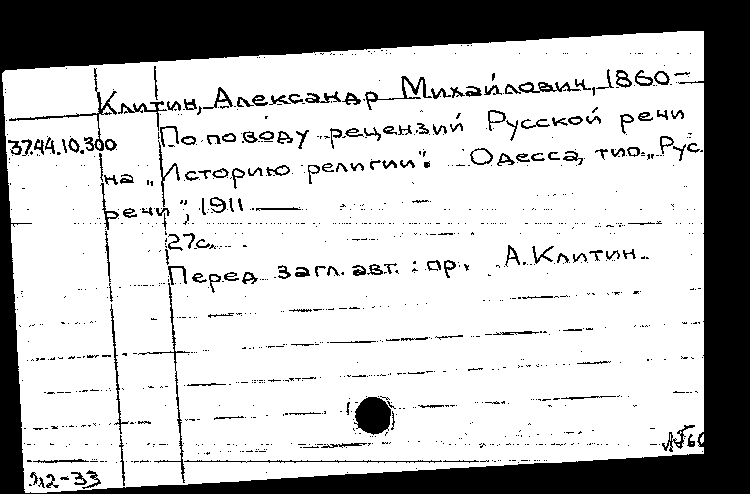 Клитин, Александр Михайлович, 1860-
37.44.10.300 По поводу рецензии Русской речи
на „Историю религии“. Одесса, тип. „Рус.
речи“, 1911
27с.
Перед загл. авт.: пр. А. Клитин.
912-33